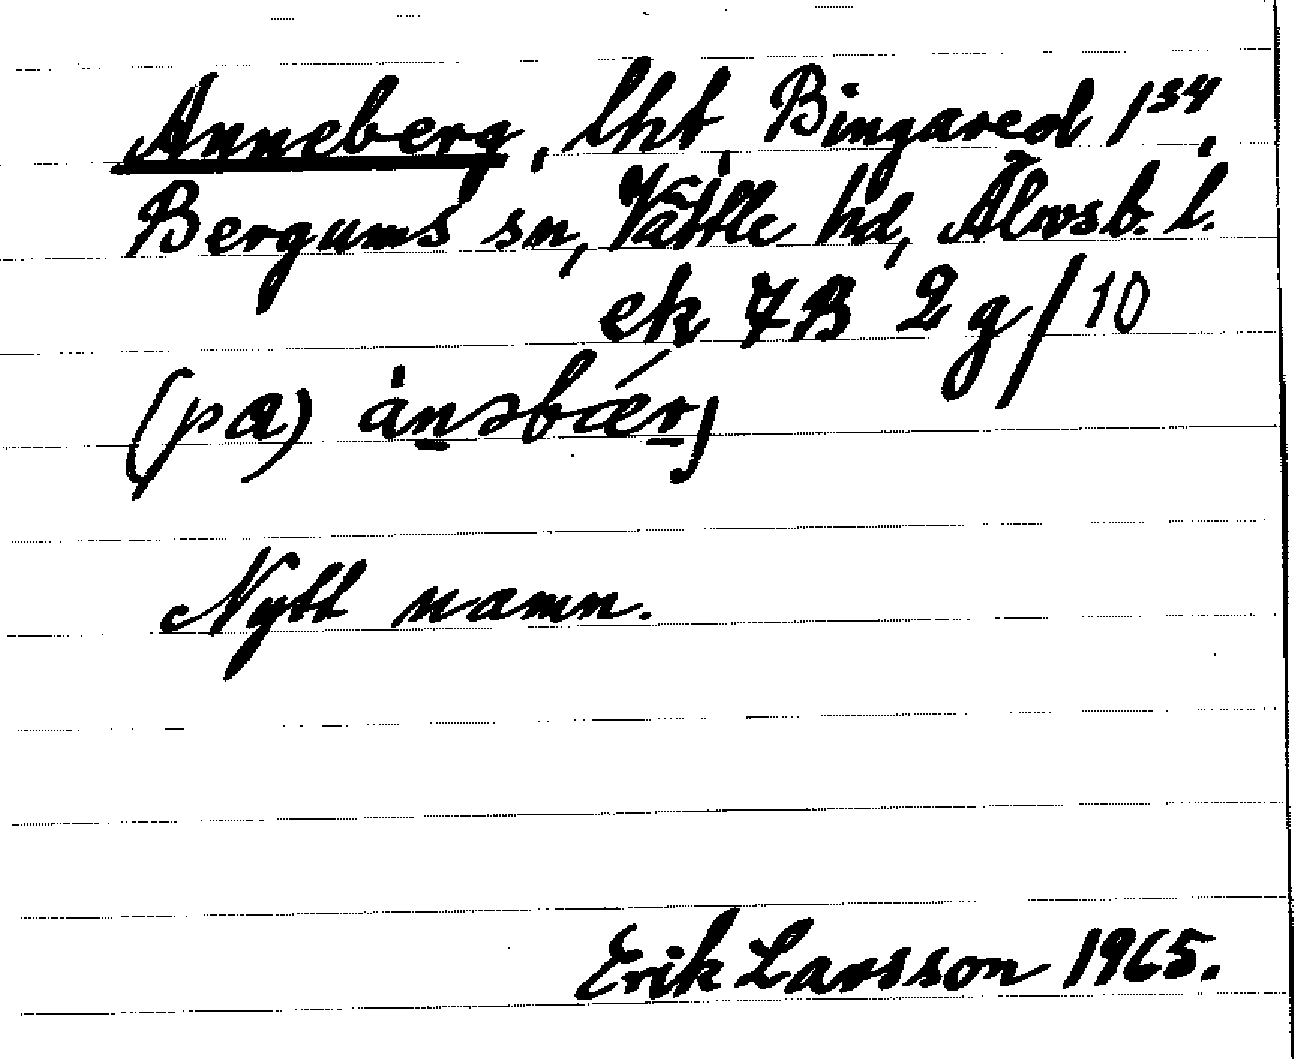 Anneberg, lht, Bingared 1³⁴,
Bergums sn, Vättle hd, Älvsb. l.
ek 7B 2 g/10
(pa) ànəbǽrj
Nytt namn.
Erik Larsson 1965.